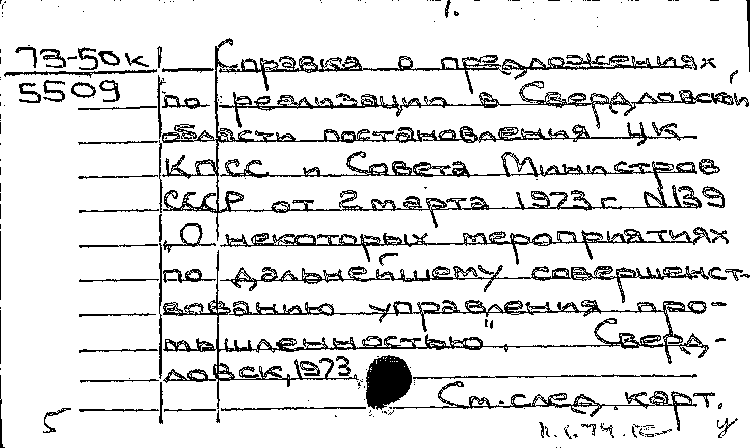 1.
73-50к Справка о предложениях
5509 по реализации в Свердловской
области постановления ЦК
КПСС и Совета Министров
СССР от 2 марта 1973 г. N139
„О некоторых мероприятиях
по дальнейшему совершенст-
вованию управления про-
мышленностью". Сверд-
ловск, 1973.
См. след. карт.
5